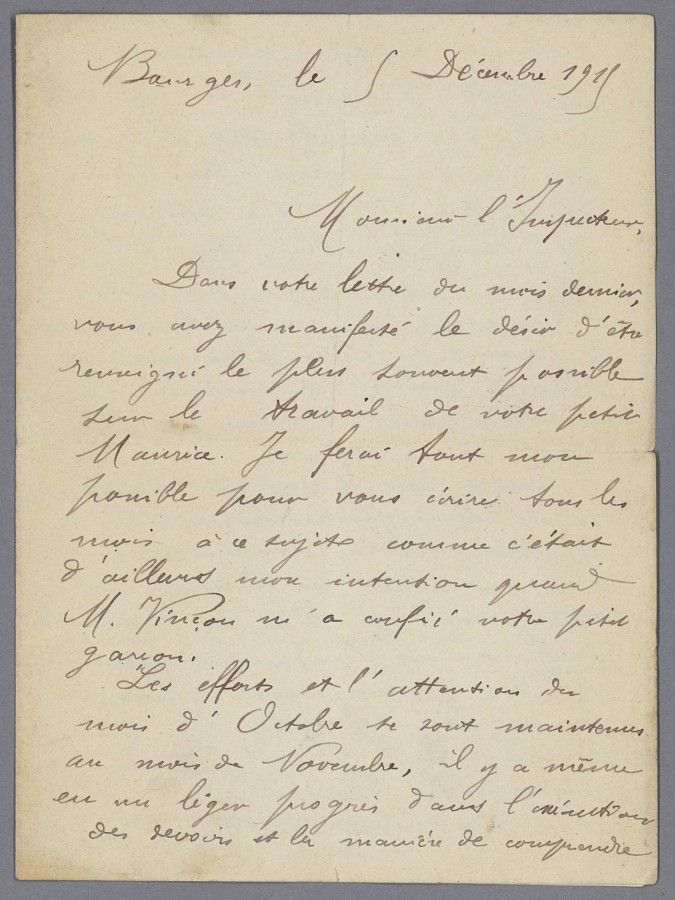 Bourges, le 5 Décembre 1915
Monsieur l'Inspecteur,
Dans votre lettre du mois dernier,
vous avez manifesté le désir d'être
renseigné le plus souvent possible
sur le travail de votre petit
Maurice. Je ferai tout mon
possible pour vous écrire tous les
mois à ce sujet comme c'était
d'ailleurs mon intention quand
M. Vinçon m'a confié votre petit
garçon.
Les efforts et l'attention du
mois d'Octobre se sont maintenus
au mois de Novembre, il y a même
eu un léger progrès dans l'exécution
des devoirs et la manière de comprendre